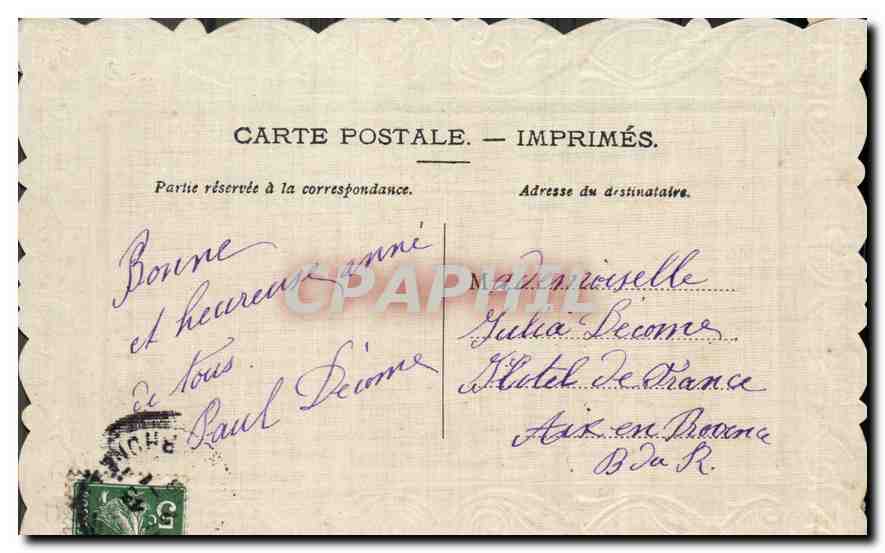 CARTE POSTALE. — IMPRIMÉS.
Partie réservée à la correspondance.
Adresse du destinataire.
Bonne
et heureuse anné
de tous
Paul Décome
Mademoiselle
Julia Décome
Hotel de France
Aix en Provence
B du R.
CPAPHIL
RHONE
5
c